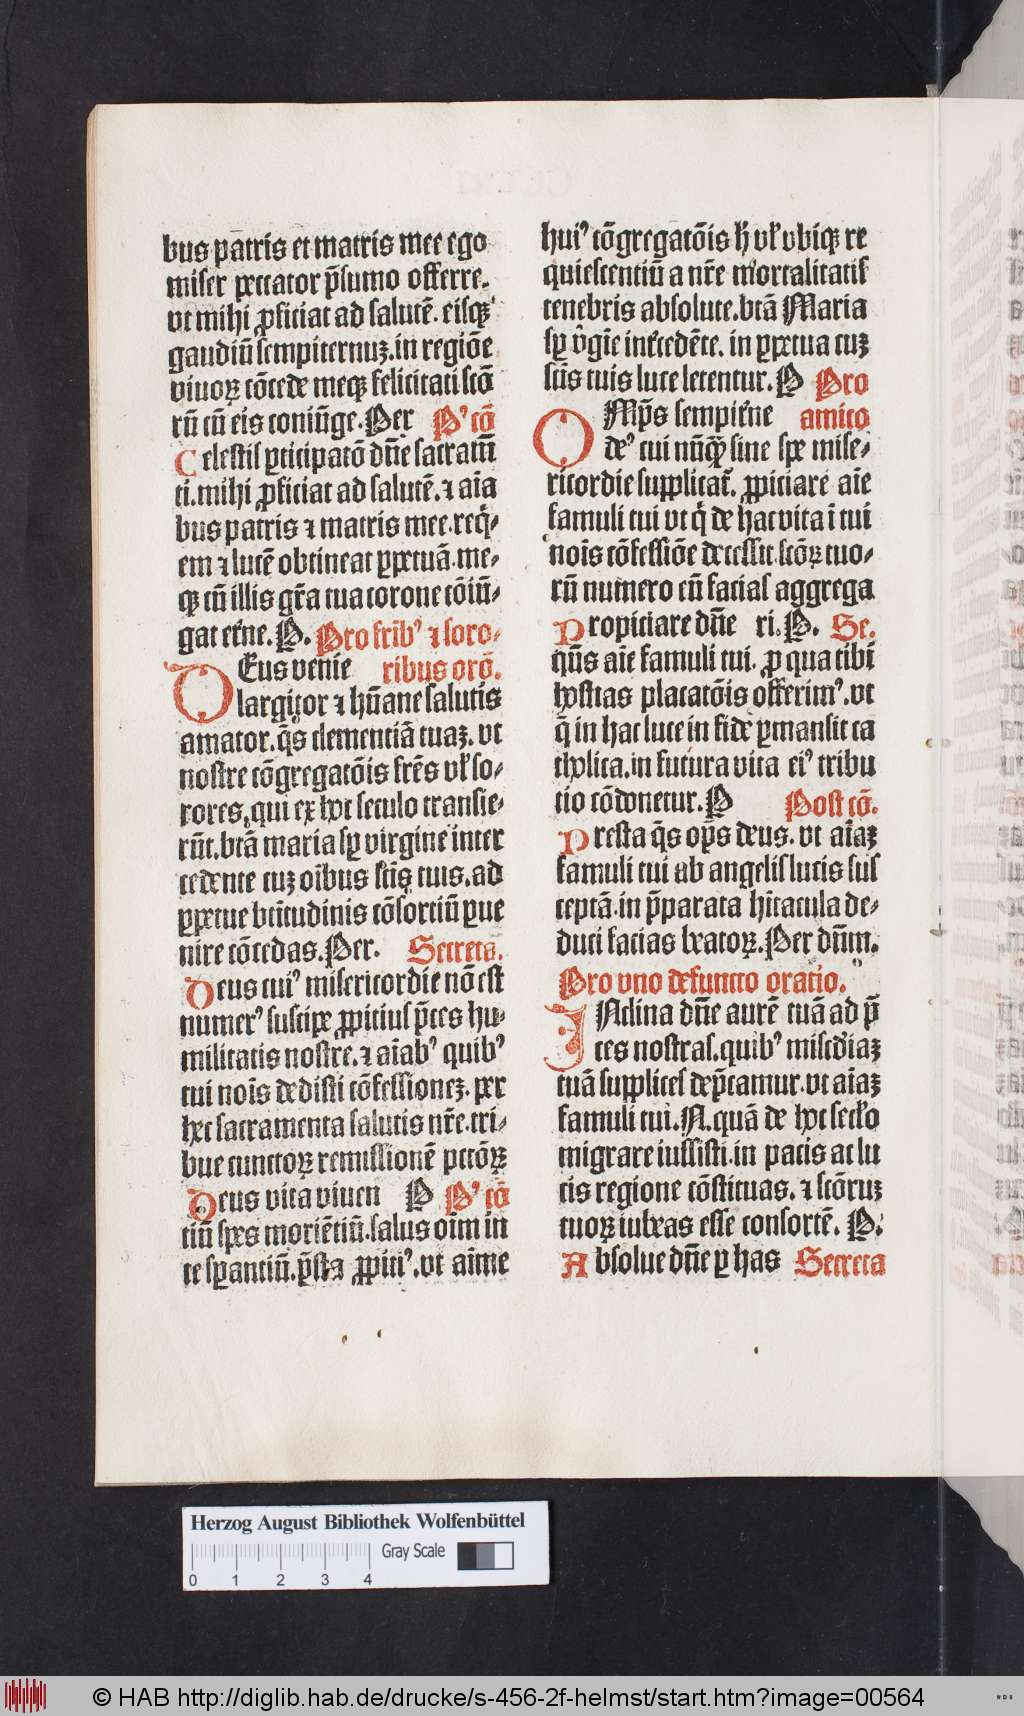 bus patris et matris mee ego
miser peccator p̄sumo offerre.
vt mihi ꝓficiat ad salutē. eisqꝫ
gaudiū sempiternuꝫ. in regiōe
viuoꝝ cōcede meqꝫ felicitati scō
rū cū eis coniūge. Per P' cō
Celestis ꝑticipatō dn̄e sacramē
ti. mihi ꝓficiat ad salutē. ⁊ aīa
bus patris ⁊ matris mee. req̇⸗
em ⁊ lucē obtineat ꝑpetuā. me⸗
qꝫ cū illis gr̄a tua corone cōiū⸗
gat et'ne. P. Pro frīb' ⁊ soro⸗
DEus venie ribus orō.
largitor ⁊ hūane salutis
amator. q̄s clementiā tuaꝫ. vt
nostre cōgregatōis fr̄es vl' so⸗
rores, qui ex hoc seculo transie⸗
rūt. btā maria sꝑ virgine inter
cedente cuꝫ oībus sctīs tuis. ad
ꝑpetue btītudinis cōsortiū ꝑue
nire cōcedas. Per. Secreta.
Deus cui' misericordie nō est
numer' suscipe ꝓpicius p̄ces hu⸗
militatis nostre. ⁊ aīab' quib'
tui noīs dedisti cōfessioneꝫ. per
hec sacramenta salutis nr̄e. tri⸗
bue cunctoꝝ remissionē pctōꝝ
Deus vita viuen P P' cō
tiū spes moriētiū. salus oīm in
te sꝑantiū. p̄sta ꝓpiti'. vt aīme
hui' cōgregatōis h̄ vl' vbiqꝫ re
quiescentiū a nr̄e mortalitatis
tenebris absolute. btā Maria
sꝑ v̇gīe int'cedēte. in ꝑpetua cuꝫ
sūs tuis luce letentur. P Pro
OMip̄s sempit'ne amico
de' cui nūq̄ꝫ sine spe mise⸗
ricordie supplicat̄. ꝓpiciare aīe
famuli tui vt q̇ de hac vita ī tui
noīs cōfessiōe decessit. scōꝝ tuo⸗
rū numero eū facias aggrega
Propiciare dn̄e ri. P. Se.
qūs aīe famuli tui. ꝓ qua tibī
hostias placatōis offerim'. vt
q̄ in hac luce in fide ꝑmansit ca
tholica. in futura vita ei' tribu
tio cōdonetur. P Post cō.
Presta q̄s op̄s deus. vt aīaꝫ
famuli tui ab angelis lucis sus
ceptā. in p̄parata hītacula de⸗
duci facias beatoꝝ. Per dn̄m.
Pro vno defuncto oratio.
INclina dn̄e aurē tuā ad p̄
ces nostras. quib' miscd̄iaꝫ
tuā supplices dep̄camur. vt aīaꝫ
famuli tui. N. quā de hoc secl'o
migrare iussisti. in pacis ac lu
cis regione cōstituas. ⁊ scōruꝫ
tuoꝝ iubeas esse consortē. P.
Absolue dn̄e ꝑ has Secreta
Herzog August Bibliothek Wolfenbüttel
Gray Scale
0 1 2 3 4
© HAB http://diglib.hab.de/drucke/s-456-2f-helmst/start.htm?image=00564